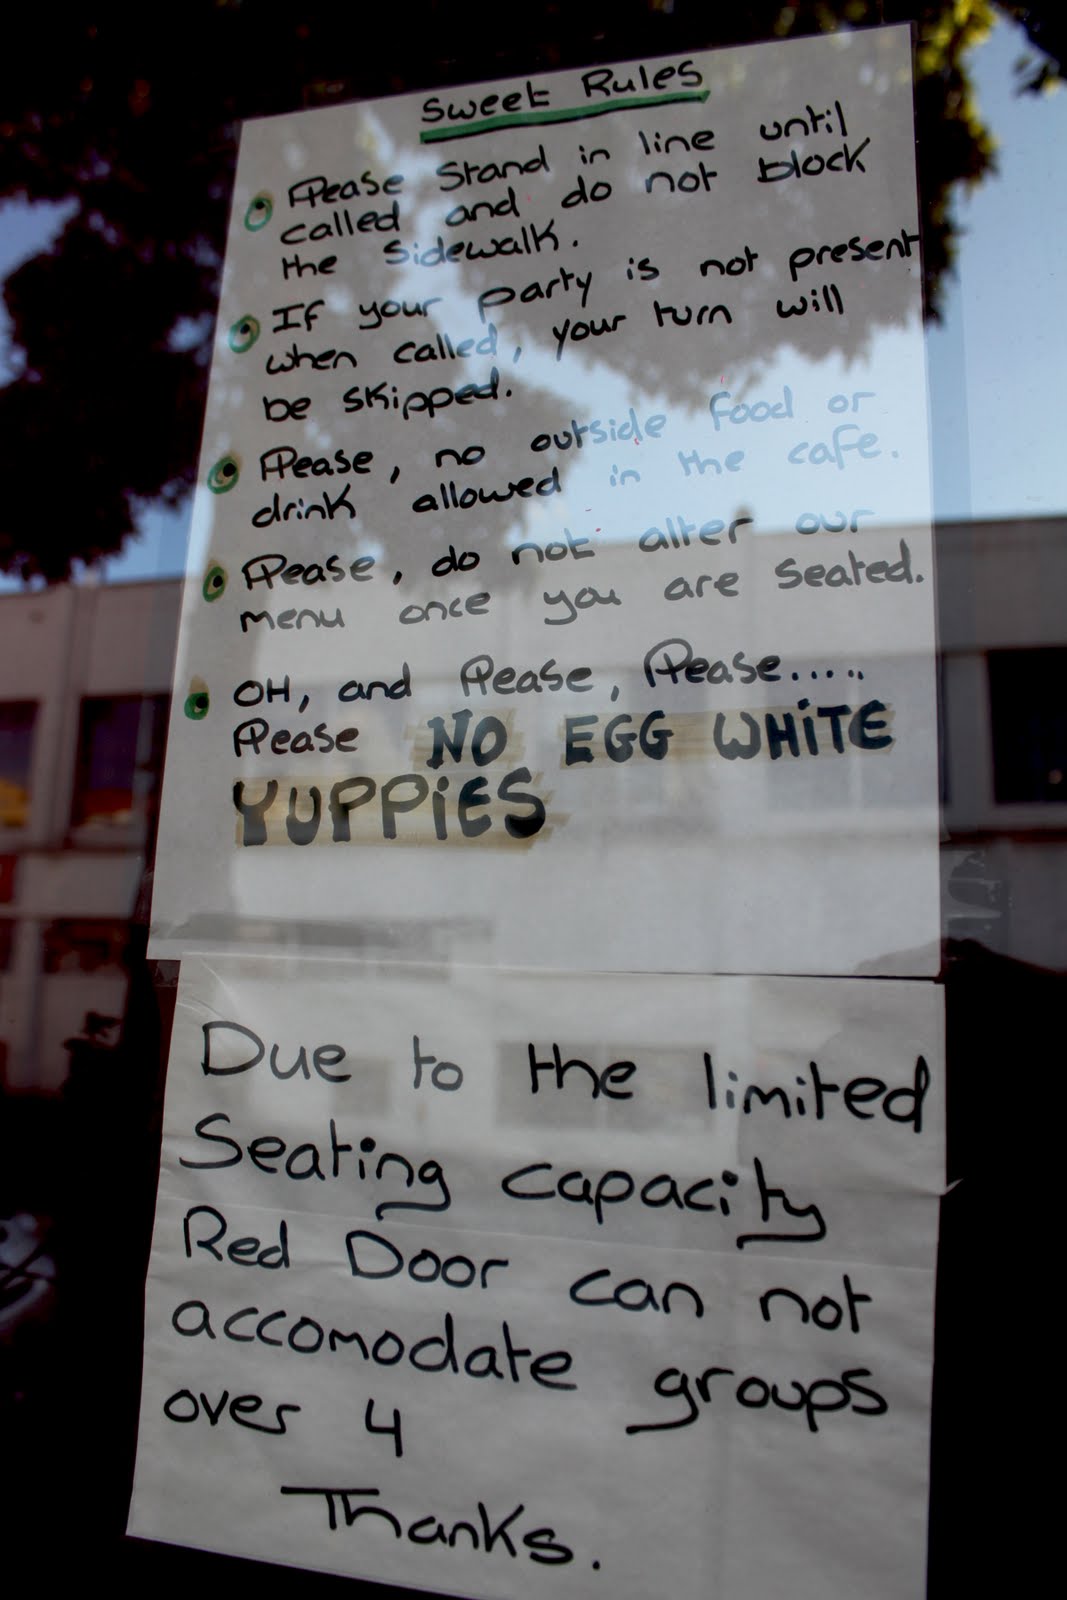 Sweet Rules
Please Stand in line until
called and do not block
the Sidewalk.
If your party is not present
when called, your turn will
be skipped.
Please, no outside food or
drink allowed in the cafe.
Please, do not alter our
menu once you are seated.
OH, and Please, Please.....
Please NO EGG WHITE
YUPPIES
Due to the limited
Seating capacity
Red Door can not
accomodate groups
over 4
Thanks.